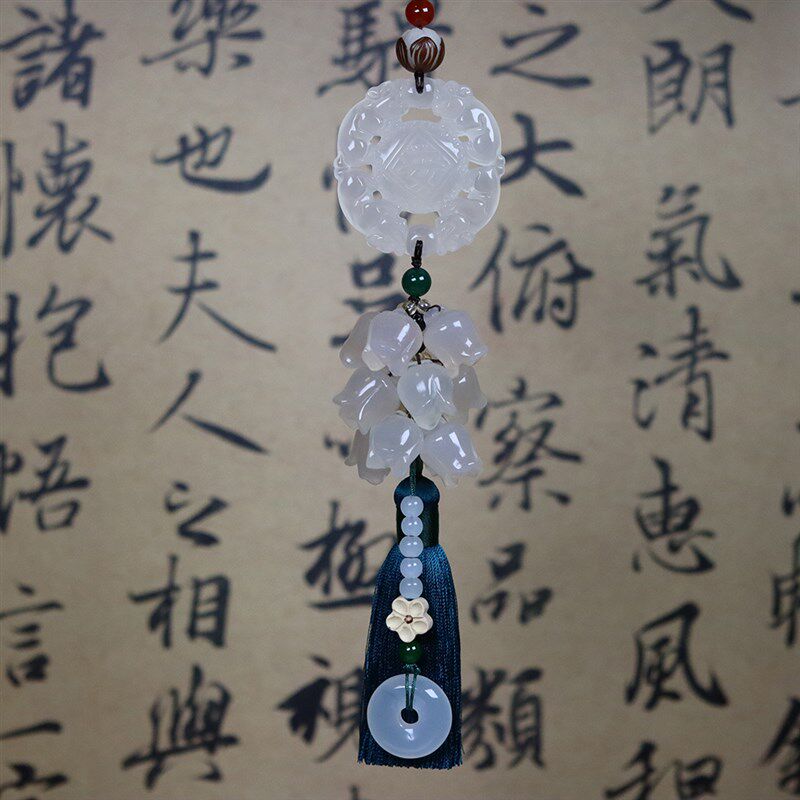 朗氣清惠風和
之大俯察品類
騁極視
樂也夫人之相與
諸懷抱悟言一室